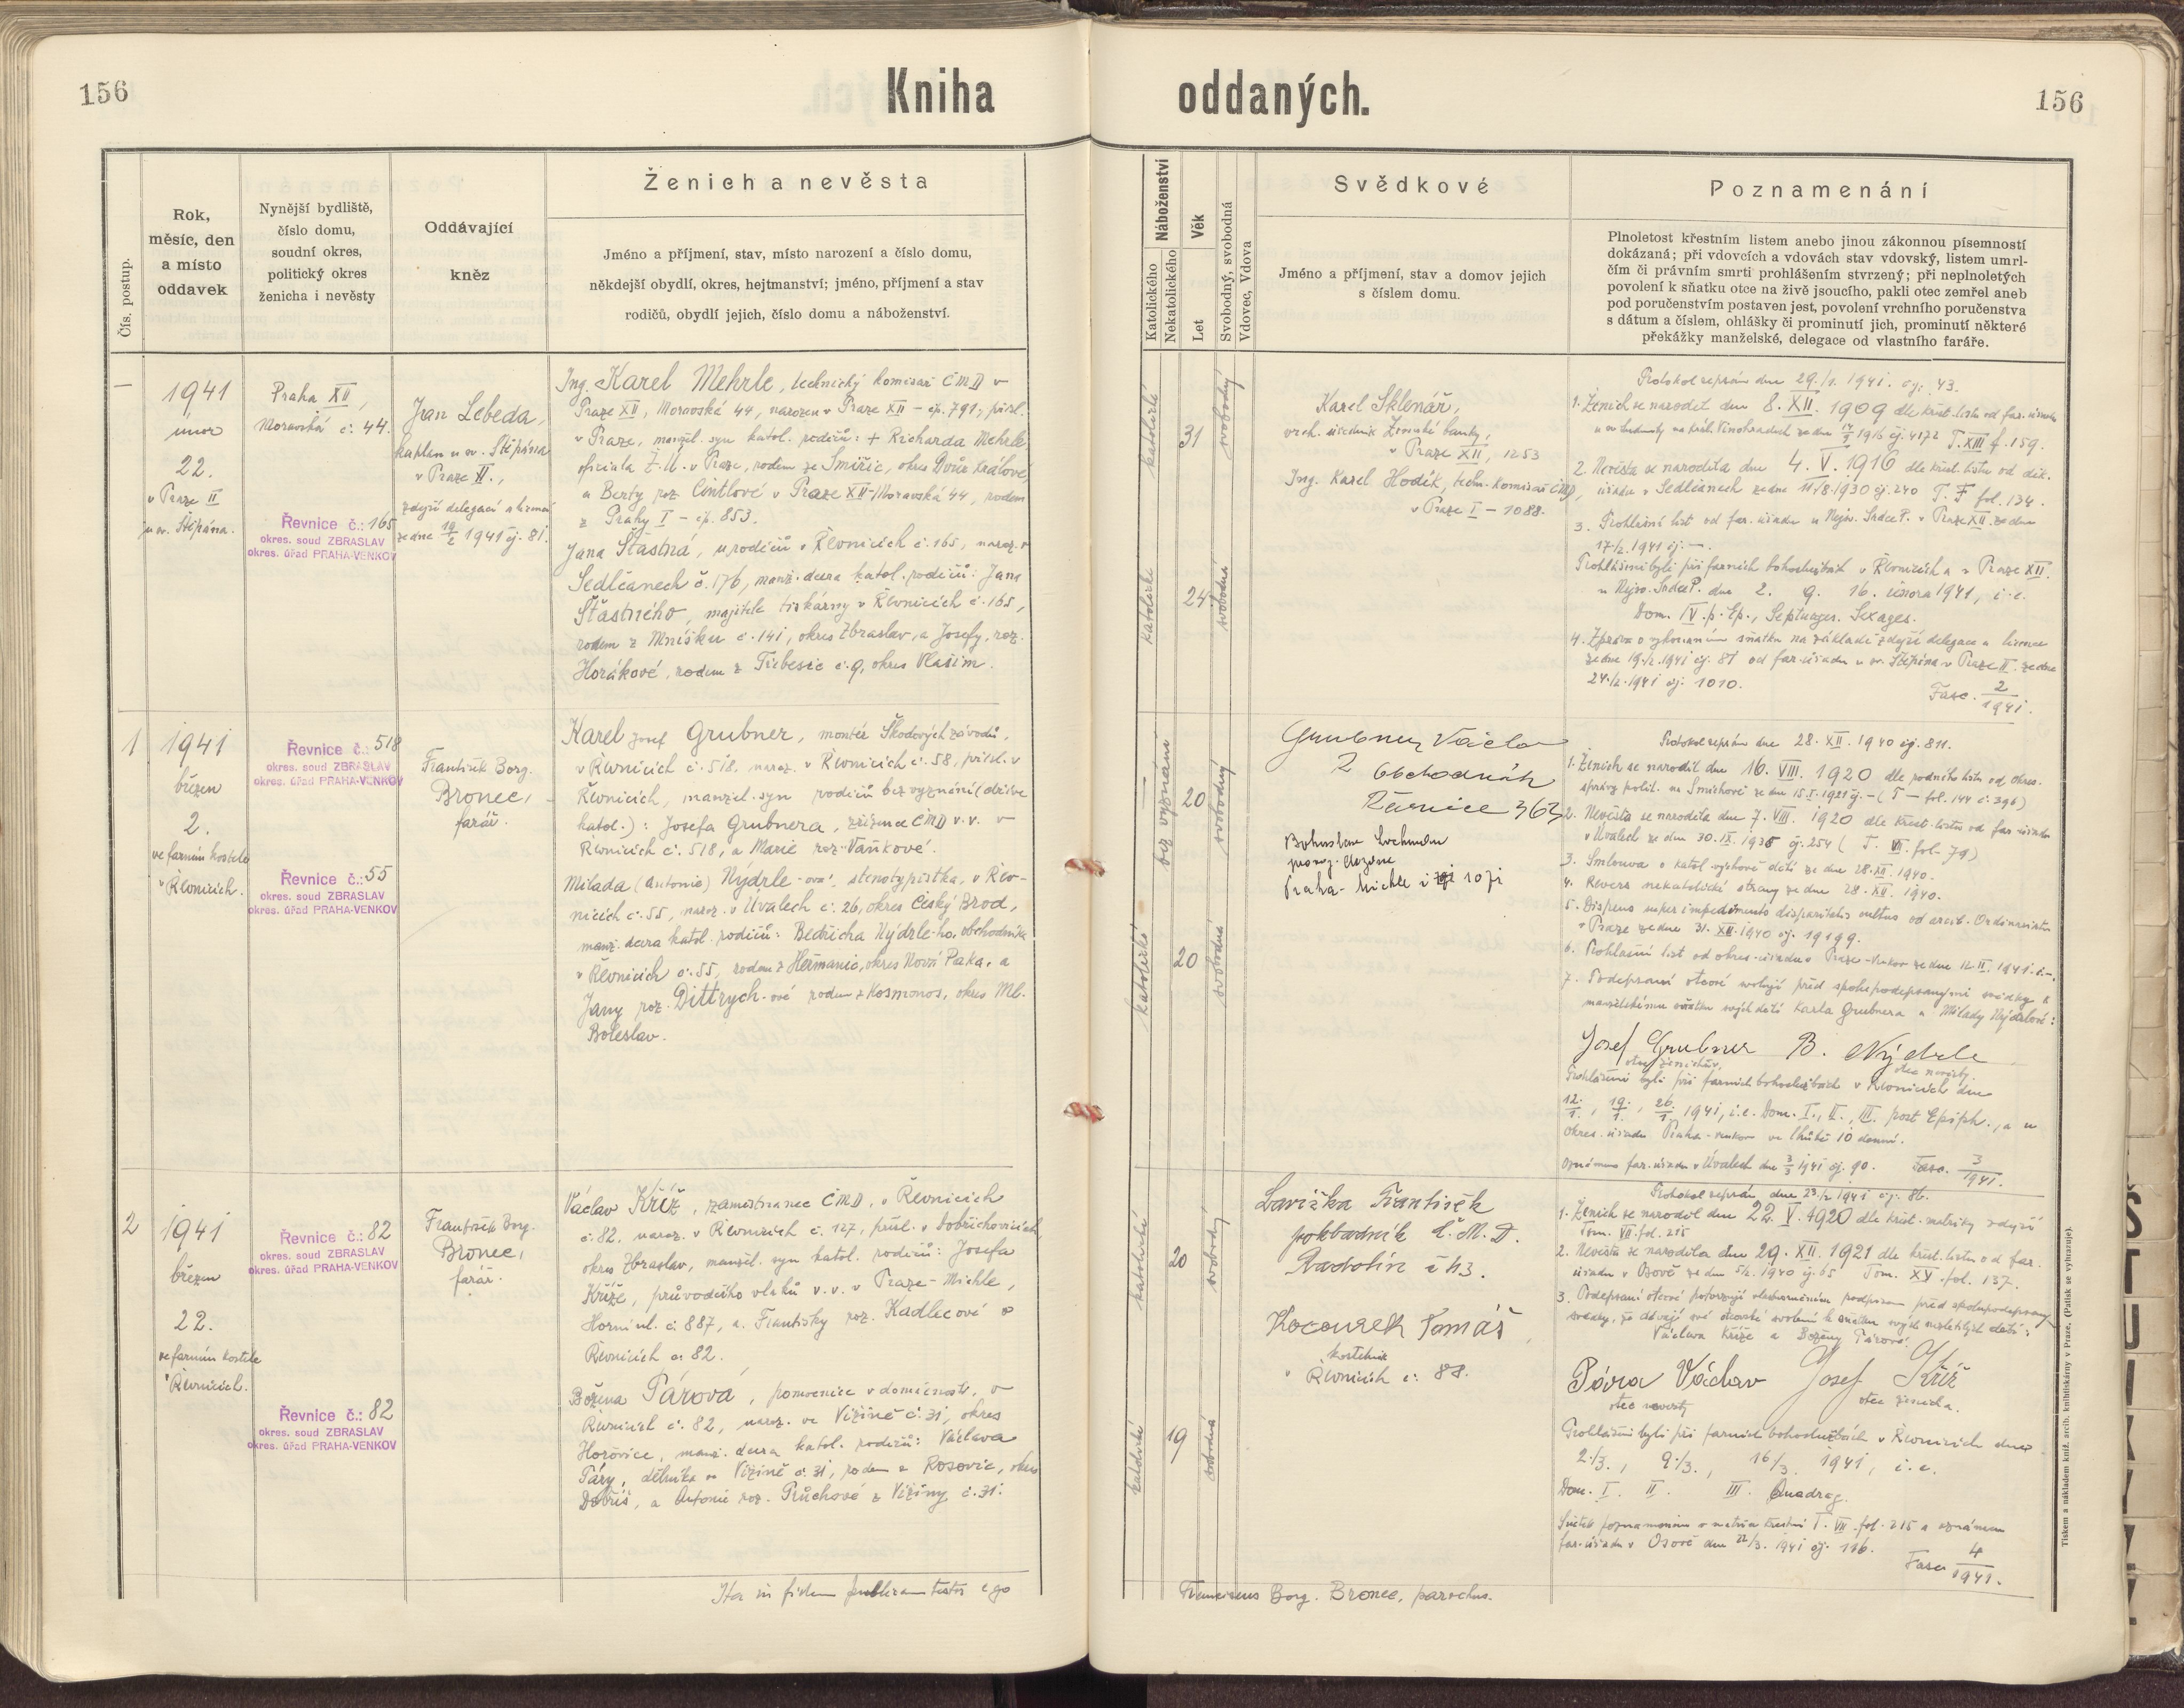 156
Kniha oddaných.
156
Čís. postup.
Rok,
měsíc, den
a místo
oddavek
Nynější bydliště,
číslo domu,
soudní okres,
politický okres
ženicha i nevěsty
Oddávající
kněz
Ženich a nevěsta
Jméno a příjmení, stav, místo narození a číslo domu,
někdejší obydlí, okres, hejtmanství; jméno, příjmení a stav
rodičů, obydlí jejich, číslo domu a náboženství.
Náboženství
Katolického
Nekatolického
Věk
Let
Svobodný, svobodná
Vdovec, Vdova
Svědkové
Jméno a příjmení, stav a domov jejich
s číslem domu.
Poznamenání
Plnoletost křestním listem anebo jinou zákonnou písemností
dokázaná; při vdovcích a vdovách stav vdovský, listem umrl-
čím či právním smrti prohlášením stvrzený; při neplnoletých
povolení k sňatku otce na živě jsoucího, pakli otec zemřel aneb
pod poručenstvím postaven jest, povolení vrchního poručenstva
s dátum a číslem, ohlášky či prominutí jich, prominutí některé
překážky manželské, delegace od vlastního faráře.
—
1941
únor
22.
v Praze II
u sv. Štěpána.
Praha XII,
Moravská č. 44.
Řevnice č.: 165
okres. soud ZBRASLAV
okres. úřad PRAHA-VENKOV
Jan Lebeda,
kaplan u sv. Štěpána
v Praze II.,
zdejší delegací a licencí
ze dne 19/2 1941 čj. 81.
Ing. Karel Mehrle, technický komisař ČMD v
Praze XII, Moravská 44, narozen v Praze XII – čp. 791, přísl.
v Praze, manžel. syn katol. rodičů: + Richarda Mehrle,
oficiala Z.Ú. v Praze, rodem ze Smiřic, okres Dvůr Králové,
a Berty roz. Cintlové v Praze XII-Moravská 44, rodem
z Prahy I – čp. 853.
Jana Šťastná, u rodičů v Řevnicích č. 165, naroz. v
Sedlčanech č. 176, manž. dcera katol. rodičů: Jana
Šťastného, majitele tiskárny v Řevnicích č. 165,
rodem z Mníšku č. 141, okres Zbraslav, a Josefy, roz.
Horákové, rodem z Třebešic č. 9, okres Vlašim.
katolické
31
svobodný
katolické
24
svobodná
Karel Sklenář,
vrch. úředník Zemské banky,
v Praze XII, 1253
Ing. Karel Hodík, techn. komisař ČMD,
v Praze I – 1088.
Protokol sepsán dne 29./1. 1941. čj. 43.
1. Ženich se narodil dne 8. XII. 1909 dle křest. listu od far. úřadu
u sv. Ludmily na Král. Vinohradech ze dne 1916 čj. 4172 T. XIII f. 159.
2. Nevěsta se narodila dne 4. V. 1916 dle křest. listu od děk.
úřadu v Sedlčanech ze dne 11/8. 1930 čj. 240 T. F fol. 134.
3. Prohlašní list od far. úřadu u Nejsv. Srdce P. v Praze XII. ze dne
17/2. 1941 čj. —.
Prohlášeni byli při farních bohoslužbách v Řevnicích a v Praze XII.
u Nejsv. Srdce P. dne 2. 9. 16. února 1941, i. e.
Dom. IV. p. Ep., Septuages. Sexages.
4. Zpráva o vykonaném sňatku na základě zdejší delegace a licence
ze dne 19./2. 1941 čj. 81 od far. úřadu u sv. Štěpána v Praze II. ze dne
24./2. 1941 čj. 1010.
Fasc. 2/1941.
1
1941
březen
2.
ve farním kostele
v Řevnicích.
Řevnice č.: 518
okres. soud ZBRASLAV
okres. úřad PRAHA-VENKOV
Řevnice č.: 55
okres. soud ZBRASLAV
okres. úřad PRAHA-VENKOV
František Borg.
Bronec,
farář.
Karel Josef Grubner, montér Škodových závodů,
v Řevnicích č. 518, naroz. v Řevnicích č. 58, přísl. v
Řevnicích, manžel. syn rodičů bez vyznání (dříve
katol.): Josefa Grubnera, zřízence ČMD v.v. v
Řevnicích č. 518, a Marie roz. Vaňkové.
Milada (Antonie) Nýdrle-ová, stenotypistka, v Řev-
nicích č. 55, naroz. v Úvalech č. 26, okres Český Brod,
manž. dcera katol. rodičů: Bedřicha Nýdrle-ho, obchodníka
v Řevnicích č. 55, rodem z Heřmanic, okres Nová Paka, a
Jany roz. Dittrych-ové rodem z Kosmonos, okres Ml.
Boleslav.
bez vyznání
20
svobodný
katolické
20
svobodná
Grubner Václav
obchodník
Řevnice 363
Bohuslav Lochman
Praha-Michle č. 1071
Protokol sepsán dne 28. XII. 1940 čj. 811.
1. Ženich se narodil dne 16. VIII. 1920 dle rodného listu od okres.
správy polit. na Smíchově ze dne 15. I. 1921 čj. – (T – fol. 144 č. 396)
2. Nevěsta se narodila dne 7. VIII. 1920 dle křest. listu od far. úřadu
v Úvalech ze dne 30. IX. 1935 čj. 254 (T. VII. fol. 79)
3. Smlouva o katol. výchově dětí ze dne 28. XII. 1940.
4. Revers nekatolické strany ze dne 28. XII. 1940.
5. Dispens super impedimento disparitatis cultus od arcib. Ordinariátu
v Praze ze dne 31. XII. 1940 čj. 19199.
6. Prohlašní list od okres. úřadu Praha-venkov ze dne 12. II. 1941. č.–.
7. Podepsaní otcové svolují před spolupodepsanými svědky k
manželskému sňatku svých dětí Karla Grubnera a Milady Nýdrlové:
Josef Grubner B. Nýdrle
otec ženichův. otec nevěsty
Prohlášeni byli při farních bohoslužbách v Řevnicích dne
12./1., 19./1., 26./1. 1941, i. e. Dom. I., II., III. post Epiph., a u
okres. úřadu Praha-venkov ve lhůtě 10 denní.
Oznámeno far. úřadu v Úvalech dne 3/3 1941 čj. 90. Fasc. 3/1941.
2
1941
březen
22.
ve farním kostele
v Řevnicích.
Řevnice č.: 82
okres. soud ZBRASLAV
okres. úřad PRAHA-VENKOV
Řevnice č.: 82
okres. soud ZBRASLAV
okres. úřad PRAHA-VENKOV
František Borg.
Bronec,
farář.
Václav Kříž, zaměstnanec ČMD, v Řevnicích
č. 82, naroz. v Řevnicích č. 127, přísl. v Dobřichovicích,
okres Zbraslav, manžel. syn katol. rodičů: Josefa
Kříže, průvodčího vlaků v.v. v Praze-Michle,
Horní ul. č. 887, a Františky roz. Kadlecové v
Řevnicích č. 82.
Božena Párová, pomocnice v domácnosti, v
Řevnicích č. 82, naroz. ve Vižině č. 31, okres
Hořovice, manž. dcera katol. rodičů: Václava
Páry, dělníka ve Vižině č. 31, rodem z Rosovic, okres
Dobříš, a Antonie roz. Průchové z Vižiny č. 31.
katolické
20
svobodný
katolické
19
svobodná
Lavička František
pokladník Č.M.D.
Radotín č 43.
Kocourek Tomáš,
kostelník
v Řevnicích č. 88.
Protokol sepsán dne 23./2 1941 čj. 86.
1. Ženich se narodil dne 22. V. 1920 dle křest. matriky zdejší
Tom. VII. fol. 215
2. Nevěsta se narodila dne 29. XII. 1921 dle křest. listu od far.
úřadu v Osově ze dne 5/2. 1940 čj. 65 Tom. XV. fol. 137.
3. Podepsaní otcové potvrzují vlastnoručním podpisem před spolupodepsanými
svědky, že dávají své otcovské svolení k sňatku svých nezletilých dětí:
Václava Kříže a Boženy Párové.
Pára Václav Josef Kříž
otec nevěsty otec ženicha.
Prohlášeni byli při farních bohoslužbách v Řevnicích dne
2./3., 9./3., 16/3. 1941, i. e.
Dom. I. II. III. Quadrag.
Sňatek poznamenán v matrice křestní T. VII. fol. 215 a oznámen
far. úřadu v Osově dne 22/3. 1941 čj. 116.
Fasc. 4/1941.
Ita in fidem publicam testor ego
Franciscus Borg. Bronec, parochus.
Tiskem a nákladem kníž. arcib. knihtiskárny v Praze. (Patisk se vyhrazuje).